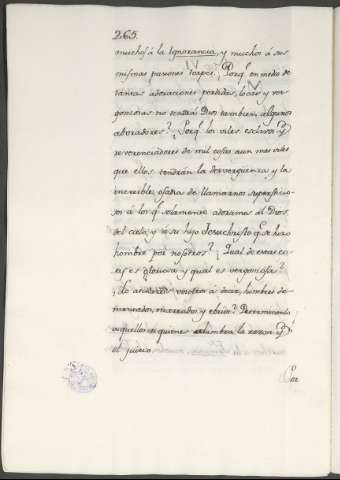 265
muchos á la Ignorancia, y muchos á sus
mismas pasiones torpes. ¿Porq.e en medio de
tantas adoraciones perdidas, locas y ver
gonzosas no tendrá Dios tambien algunos
adoradores? ¿Porq.e los viles esclavos y
reverenciadores de mil cosas aun mas viles
que ellos tendrán la desvergüenza y la
increible osadia de llamarnos supersticio
sos á los q.e solamente adoramos al Dios
del cielo y á su hijo Jesuchristo q.e se hizo
hombre por nosotros? ¿Qual de estas co
sas es gloriosa y qual es vergonzosa?
á decir, hombres de
y ebrios? Determinenlo
aquellos á quienes alumbra la razon y
el juicio.
Por